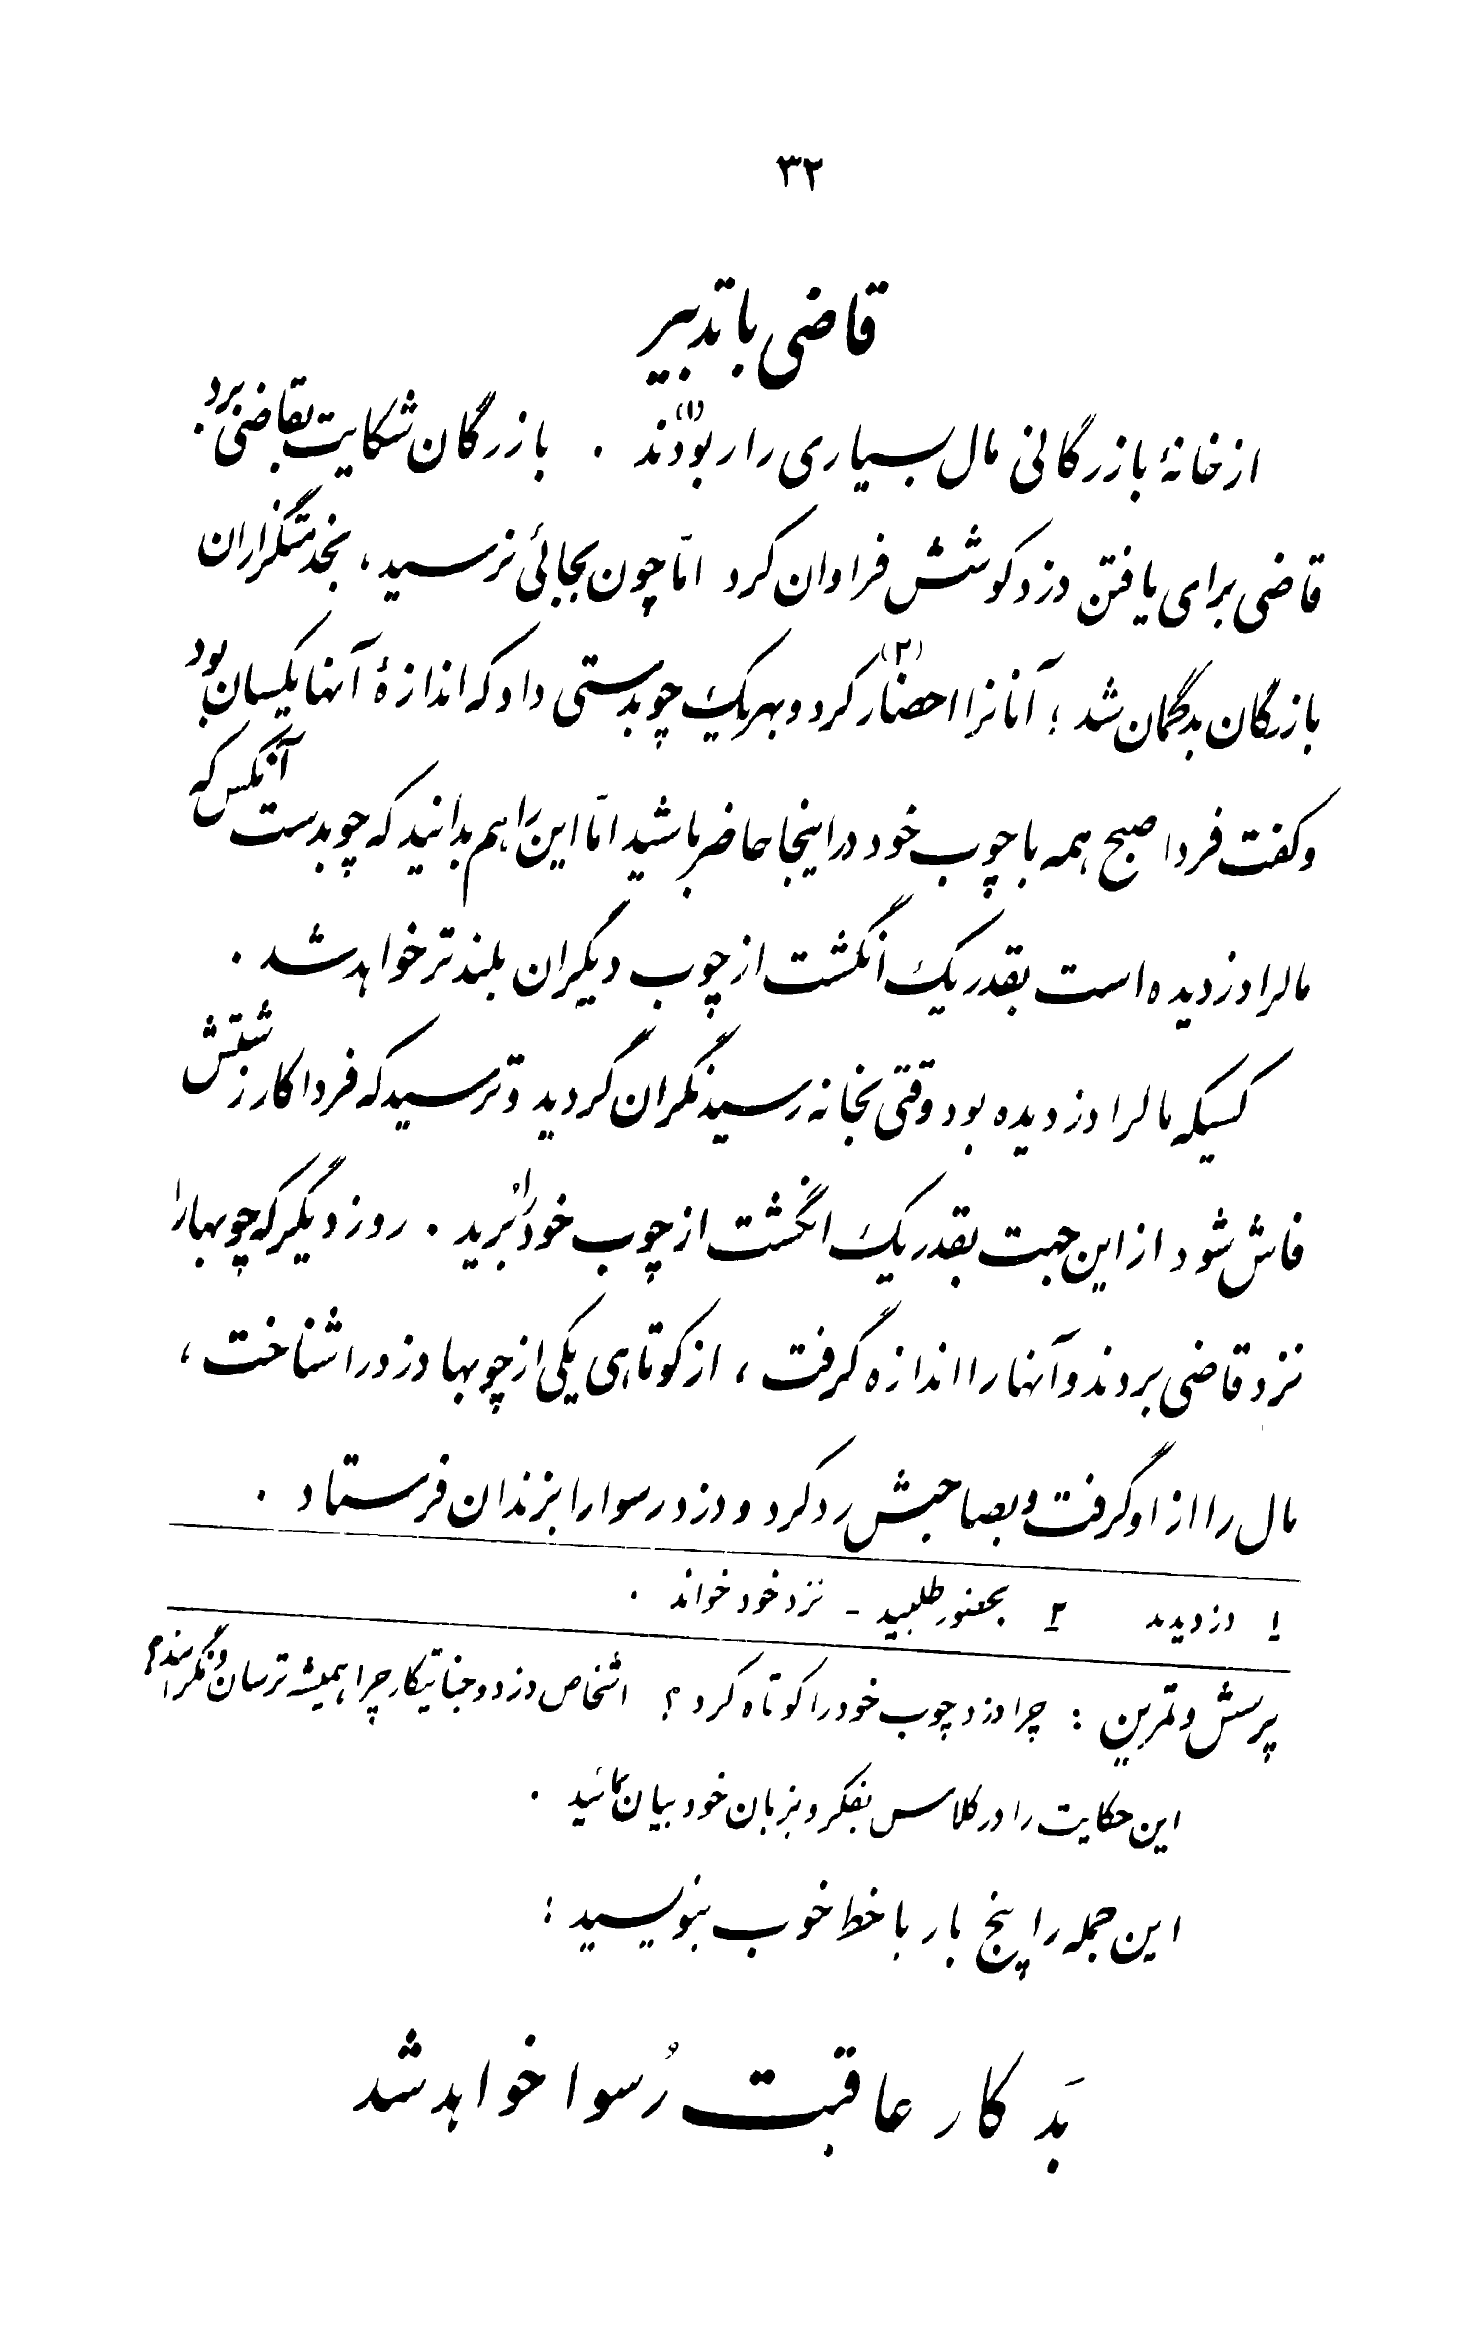 ۳۲
قاضی با تدبیر
از خانهٔ بازرگانی مال بسیاری را ربودند (۱) . بازرگان شکایت بقاضی برد .
قاضی برای یافتن دزد کوشش فراوان کرد امّا چون بجائی نرسید ، بخدمتگزاران
بازرگان بدگمان شد ؛ آنانرا احضار (۲) کرد و بهریک چوبدستی داد که اندازهٔ آنها یکسان بود
و گفت فردا صبح همه با چوب خود در اینجا حاضر باشید امّا این را هم بدانید که چوبدست آنکس که
مالرا دزدیده است بقدر یک انگشت از چوب دیگران بلندتر خواهد شد .
کسیکه مالرا دزدیده بود وقتی بخانه رسید نگران گردید و ترسید که فردا کار زشتش
فاش شود از این جهت بقدر یک انگشت از چوب خود را بُرید . روز دیگر که چوبها را
نزد قاضی بردند و آنها را اندازه گرفت ، از کوتاهی یکی از چوبها دزد را شناخت ،
مال را از او گرفت و بصاحبش رد کرد و دزد رسوا را بزندان فرستاد .
۱ دزدیدند ۲ بحضور طلبید - نزد خود خواند .
پرسش و تمرین : چرا دزد چوب خود را کوتاه کرد ؟ اشخاص دزد و جنایتکار چرا همیشه ترسان و نگرانند ؟
این حکایت را در کلاس بفکر و بزبان خود بیان نمائید .
این جمله را پنج بار با خط خوب بنویسید :
بَد کار عاقبت رُسوا خواهد شد